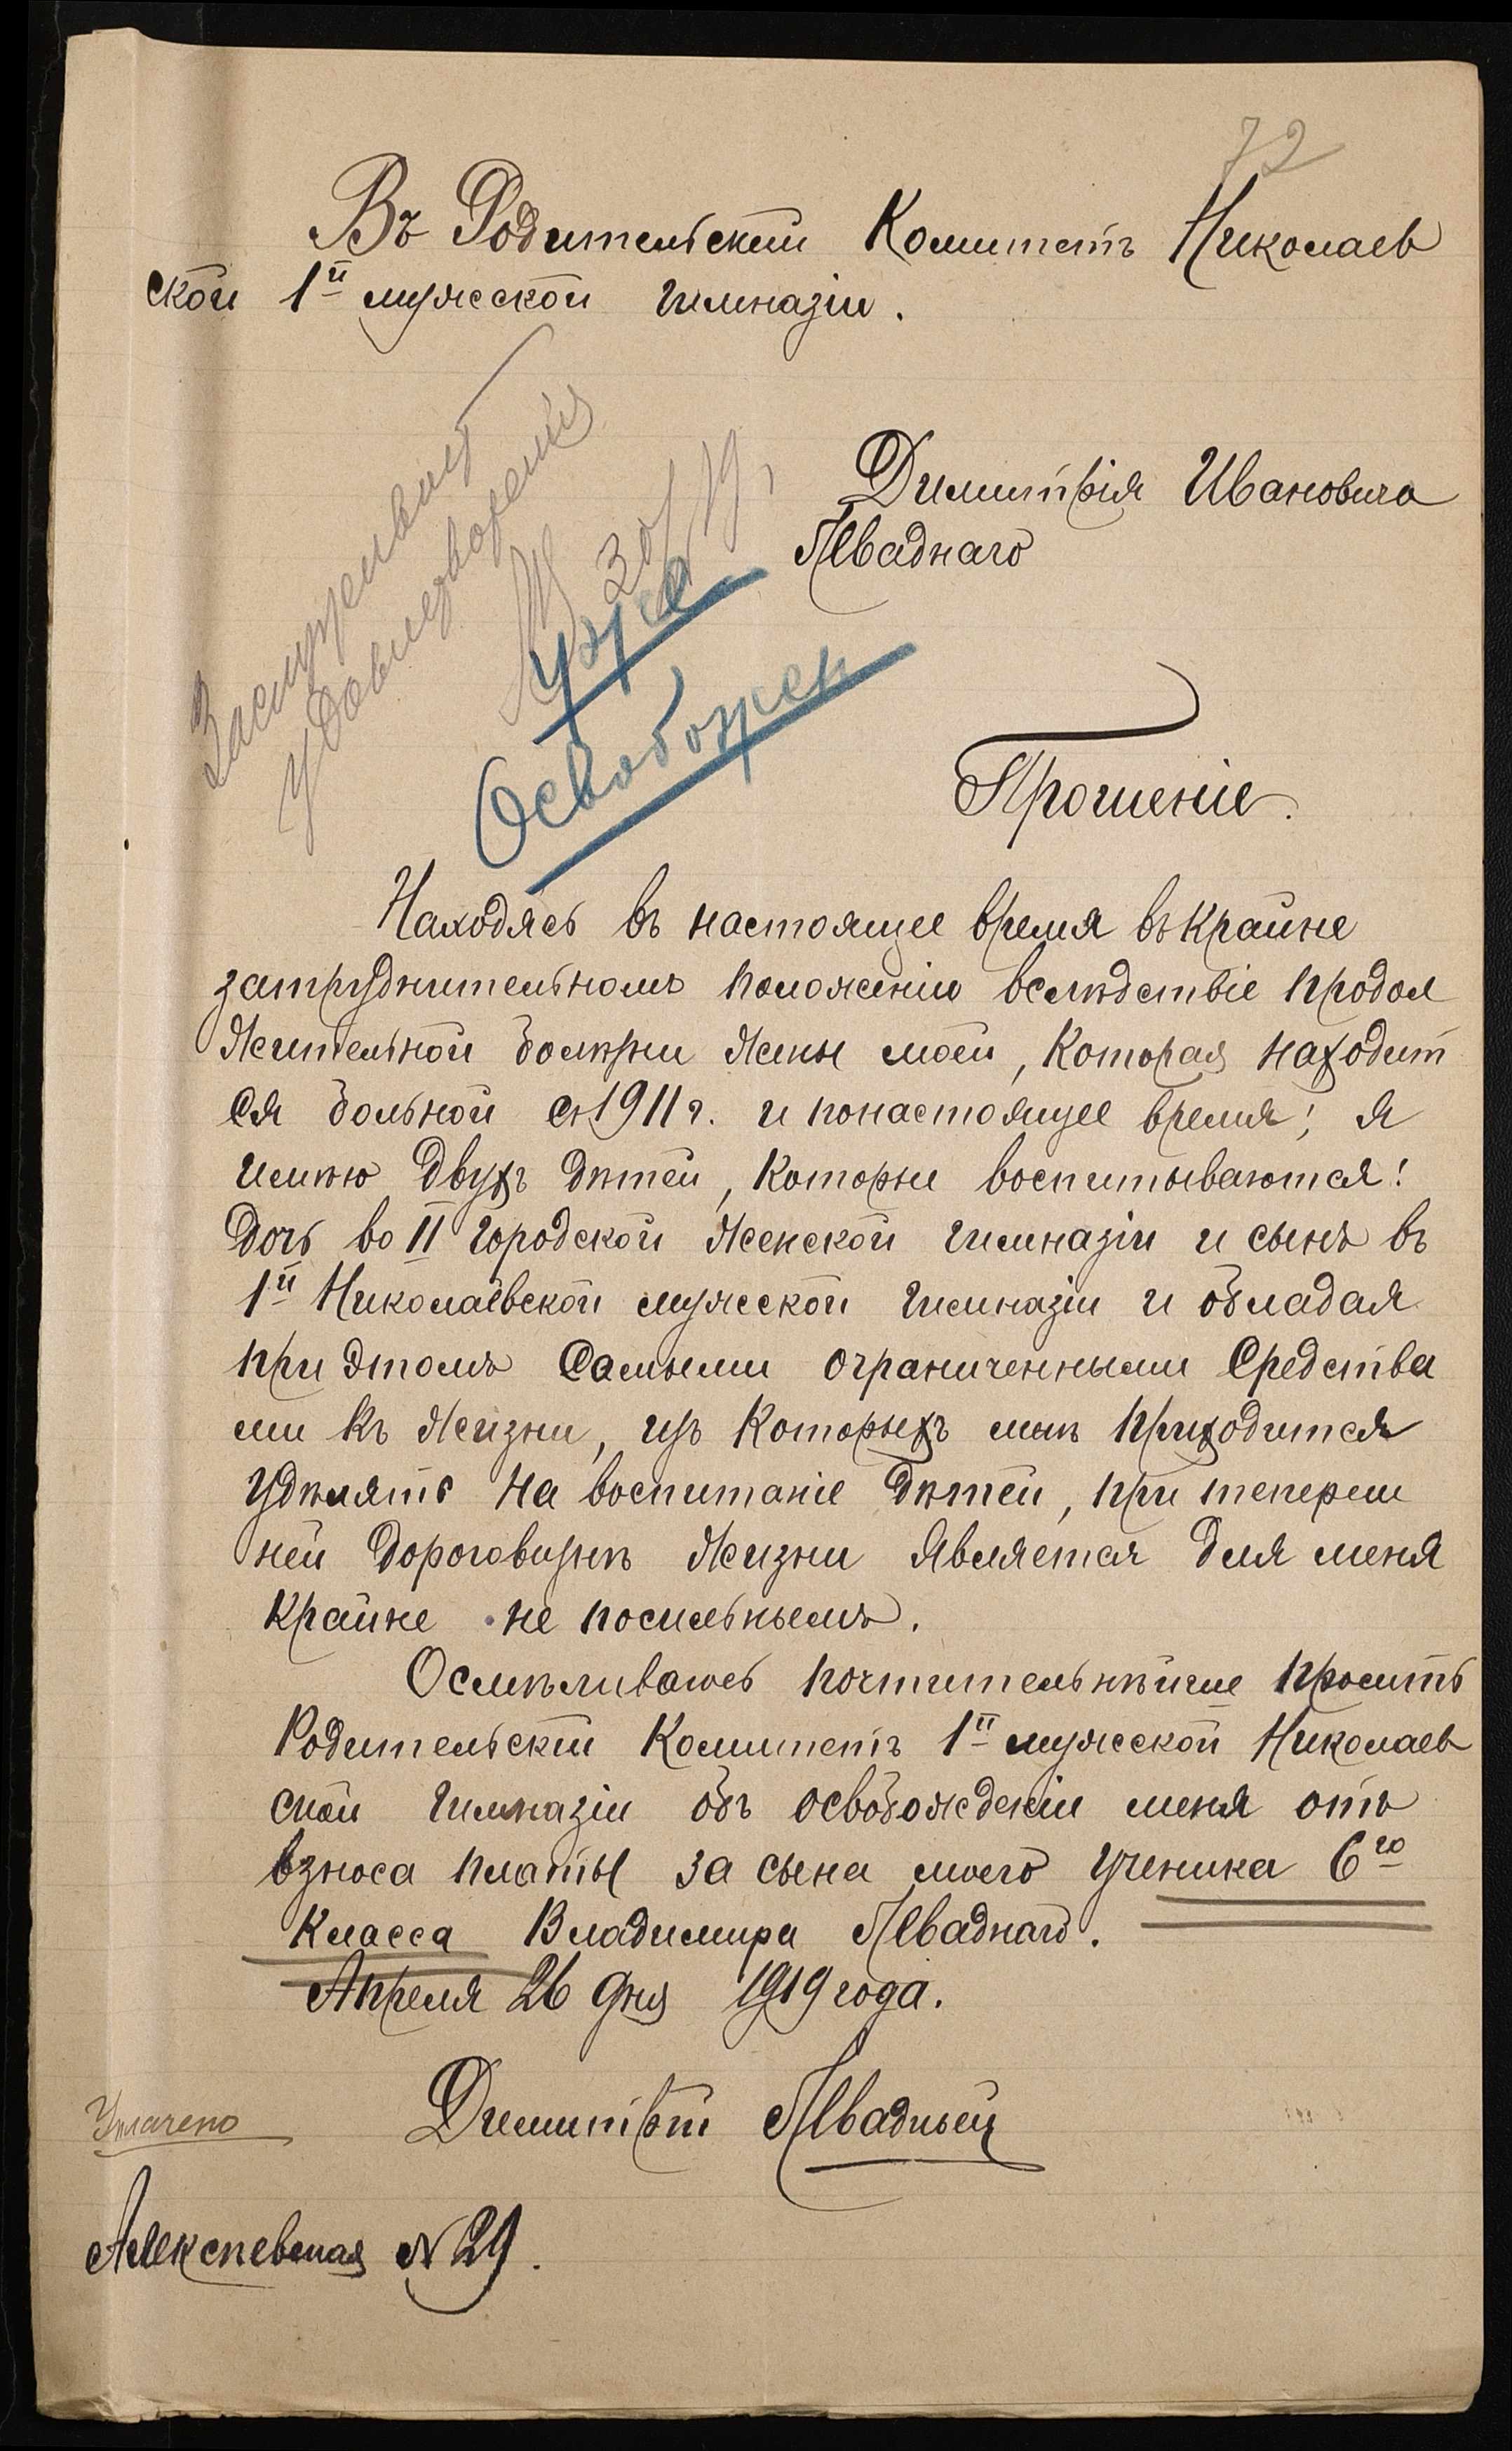 72
Въ Родительскій Комитетъ Николаев
ской 1й мужской гимназіи.
Димитрія Ивановича
Лваднаго
Заслуживает
удовлетворенія
30/ 19,
Уже
Освобожен
Прошеніе.
Находясь въ настоящее время въ крайне
затруднительномъ положеніи вслѣдствіе продол
жительной болѣзни жены моей, которая находит
ся больной съ 1911 г. и по настоящее время; я
имѣю двухъ дѣтей, которые воспитываются:
дочь во II городской женской гимназіи и сынъ въ
1й Николаевской мужской гимназіи и обладая
при этомъ самыми ограниченными средства
ми къ жизни, изъ которыхъ мнѣ приходится
удѣлять на воспитаніе дѣтей, при тепереш
ней дороговизнѣ жизни является для меня
крайне не посильнымъ.
Осмѣливаюсь почтительнѣйше просить
Родительскій Комитетъ 1й мужской Николаев
ской гимназіи объ освобожденіи меня отъ
взноса платы за сына моего ученика 6го
класса Владимира Лваднаго.
Апреля 26 дня 1919 года.
Уплачено
Димитрій Лвадный
Алексѣевская № 29.